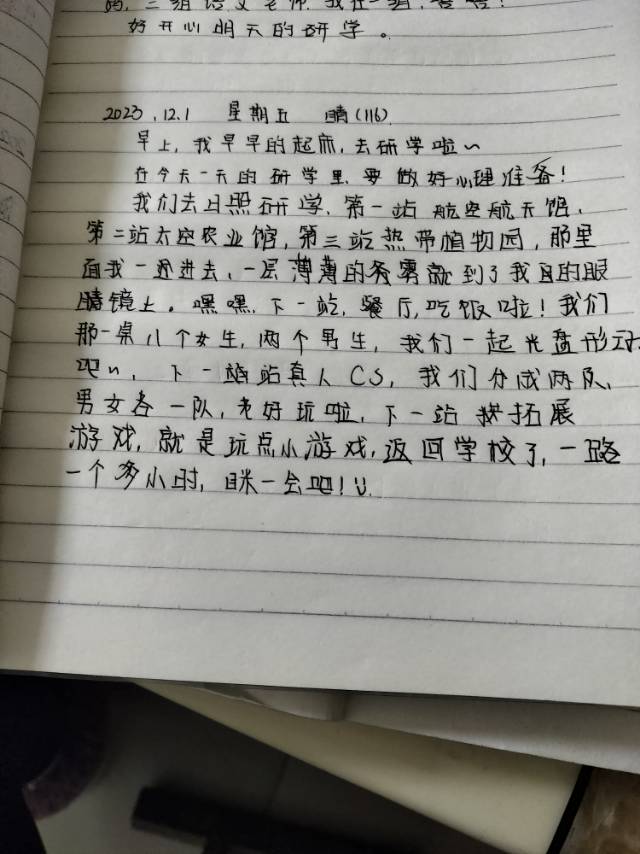 三组语文老师,我在一组,
好开心明天的研学。
2023.12.1 星期五 晴(116)
早上,我早早的起床,去研学啦~
在今天一天的研学里,要做好心理准备!
我们去日照研学,第一站航空航天馆,
第二站太空农业馆,第三站热带植物园,那里
面我一进去,一层薄薄的雾就到了我的眼
睛镜上。嘿嘿,下一站,餐厅,吃饭啦!我们
那一桌八个女生,两个男生,我们一起光盘行动
吧~,下一站真人CS,我们分成两队,
男女各一队,老好玩啦,下一站拓展
游戏,就是玩点小游戏,返回学校了,一路
一个多小时,眯一会吧!